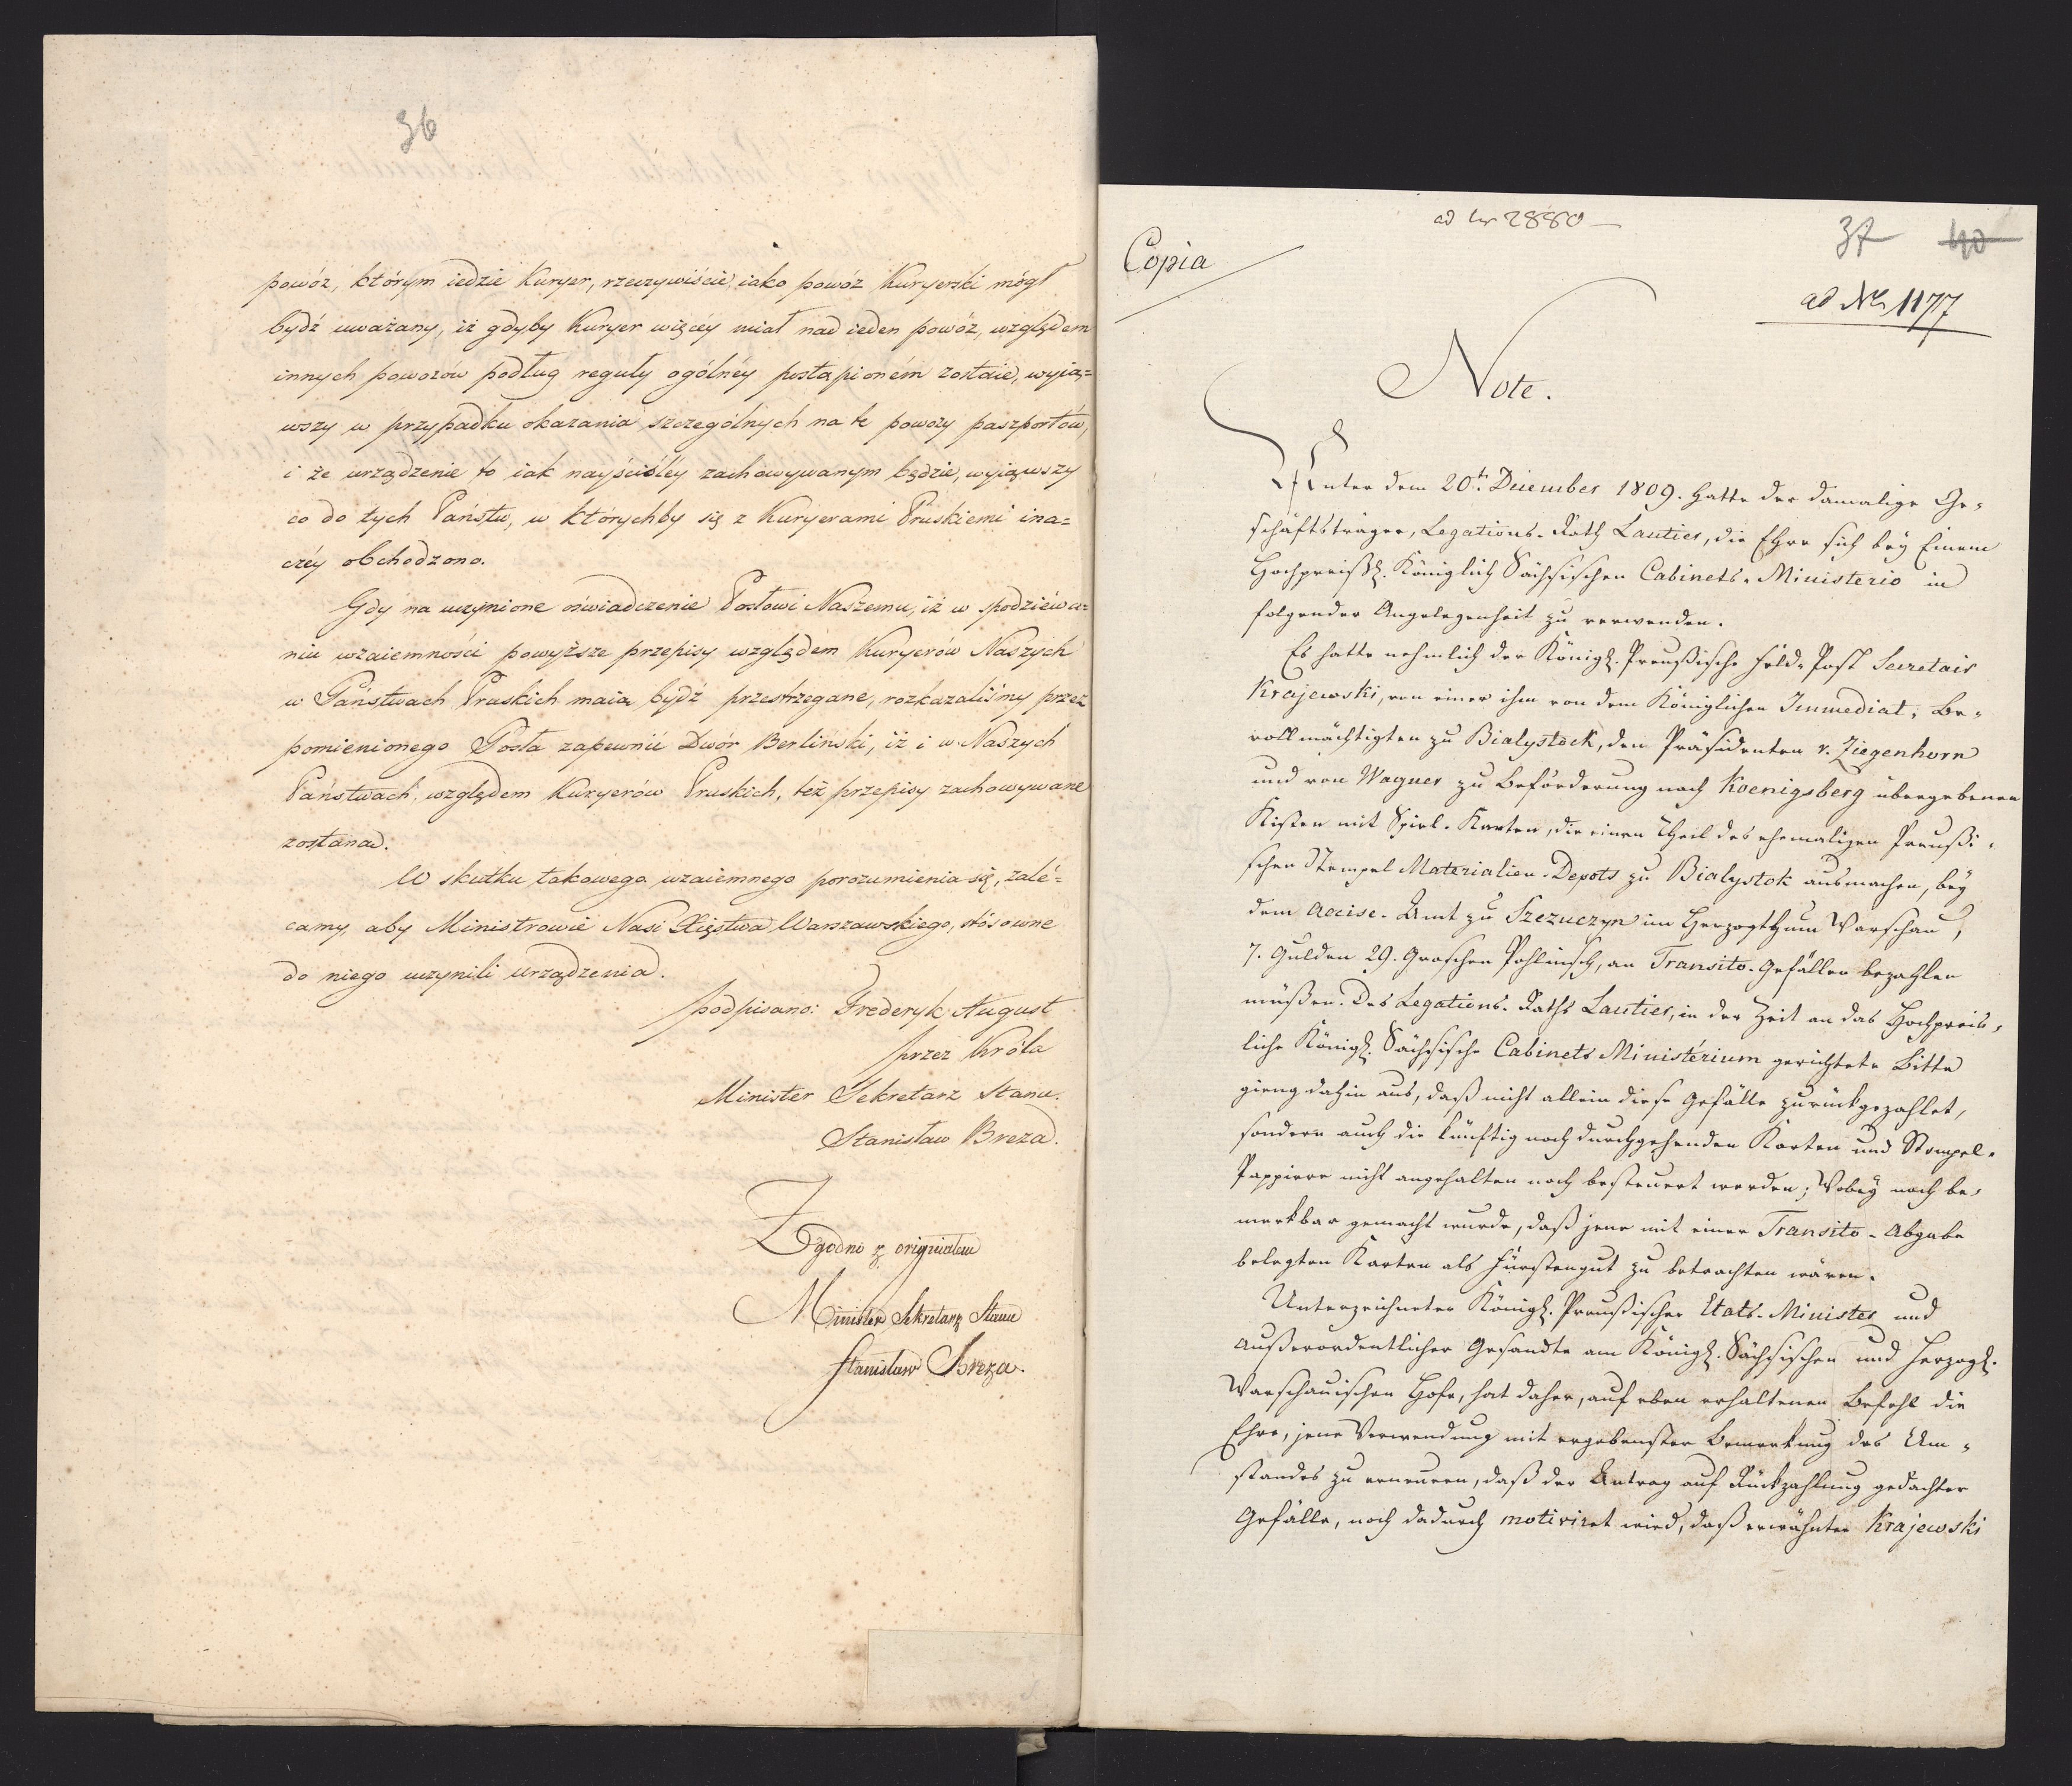 36
powóz, którym iedzie Kuryer, rzeczywiście iako powóz Kuryerski mógł
bydź uważany, iż gdyby Kuryer więcéy miał nad ieden powóz, względem
innych powozów podług reguły ogólnéy postąpioném zostaie, wyią=
wszy w przypadku okazania szczególnych na te powozy paszportów,
i że urządzenie to iak nayściśléy zachowywanym będzie, wyiąwszy
co do tych Państw, w którychby się z Kuryerami Pruskiemi ina=
czéy obchodzono.
Gdy na uczynione oświadczenie Posłowi Naszemu, iż w spodziéwa=
niu wzaiemności powyższe przepisy względem Kuryerów Naszych
w Państwach Pruskich maią bydź przestrzegane, rozkazaliśmy przez
pomienionego Posła zapewnić Dwór Berliński, iż i w Naszych
Państwach, względem Kuryerów Pruskich, też przepisy zachowywane
zostaną.
W skutku takowego wzaiemnego porozumienia się, zalé=
camy, aby Ministrowie Nasi Xięstwa Warszawskiego, stósowne
do niego uczynili urządzenia.
podpisano: Frederyk August
przez Króla
Minister Sekretarz Stanu.
Stanisław Breza.
Zgodno z originałem
Minister Sekretarz Stanu
Stanisław Breza.
ad 2880
37 40
Copia
ad No. 1177
Note.
Unter dem 20t. December 1809. hatte der damalige Ge-
schäftsträger, Legations-Rath Lautier, die Ehre sich bey Einem
Hochpreißl. Königlich Sächsischen Cabinets-Ministerio in
folgender Angelegenheit zu verwenden.
Es hatte nehmlich der Königl. Preußische Feld-Post Secretair
Krajewski, von einer ihm von dem Königlichen Immediat-Be-
vollmächtigten zu Bialystock, den Präsidenten v. Ziegenhorn
und von Wagner zu Beförderung nach Koenigsberg übergebenen
Kisten mit Spiel-Karten, die einen Theil des ehemaligen Preußi-
schen Stempel Materialien-Depots zu Bialystok ausmachen, bey
dem Accise-Amt zu Szczuczyn im Herzogthum Warschau,
7. Gulden 29. Groschen Pohlnisch, an Transito-Gefällen bezahlen
müßen. Des Legations-Raths Lautier, in der Zeit an das Hochpreis-
liche Königl. Sächsische Cabinets Ministerium gerichtete Bitte
gieng dahin aus, daß nicht allein diese Gefälle zurückgezahlet,
sondern auch die künftig noch durchgehenden Karten und Stempel-
Pappiere nicht angehalten noch besteuert werden; Wobey noch be-
merkbar gemacht wurde, daß jene mit einer Transito-Abgabe
belegten Karten als Fürstengut zu betrachten wären.
Unterzeichneter Königl. Preußischer Etats-Minister und
außerordentlicher Gesandte am Königl. Sächsischen und Herzogl.
Warschauischen Hofe, hat daher, auf eben erhaltenen Befehl die
Ehre, jene Verwendung mit ergebenster Bemerkung des Um-
standes zu erneuern, daß der Antrag auf Rückzahlung gedachter
Gefälle, noch dadurch motiviret wird, daß erwähnter Krajewski